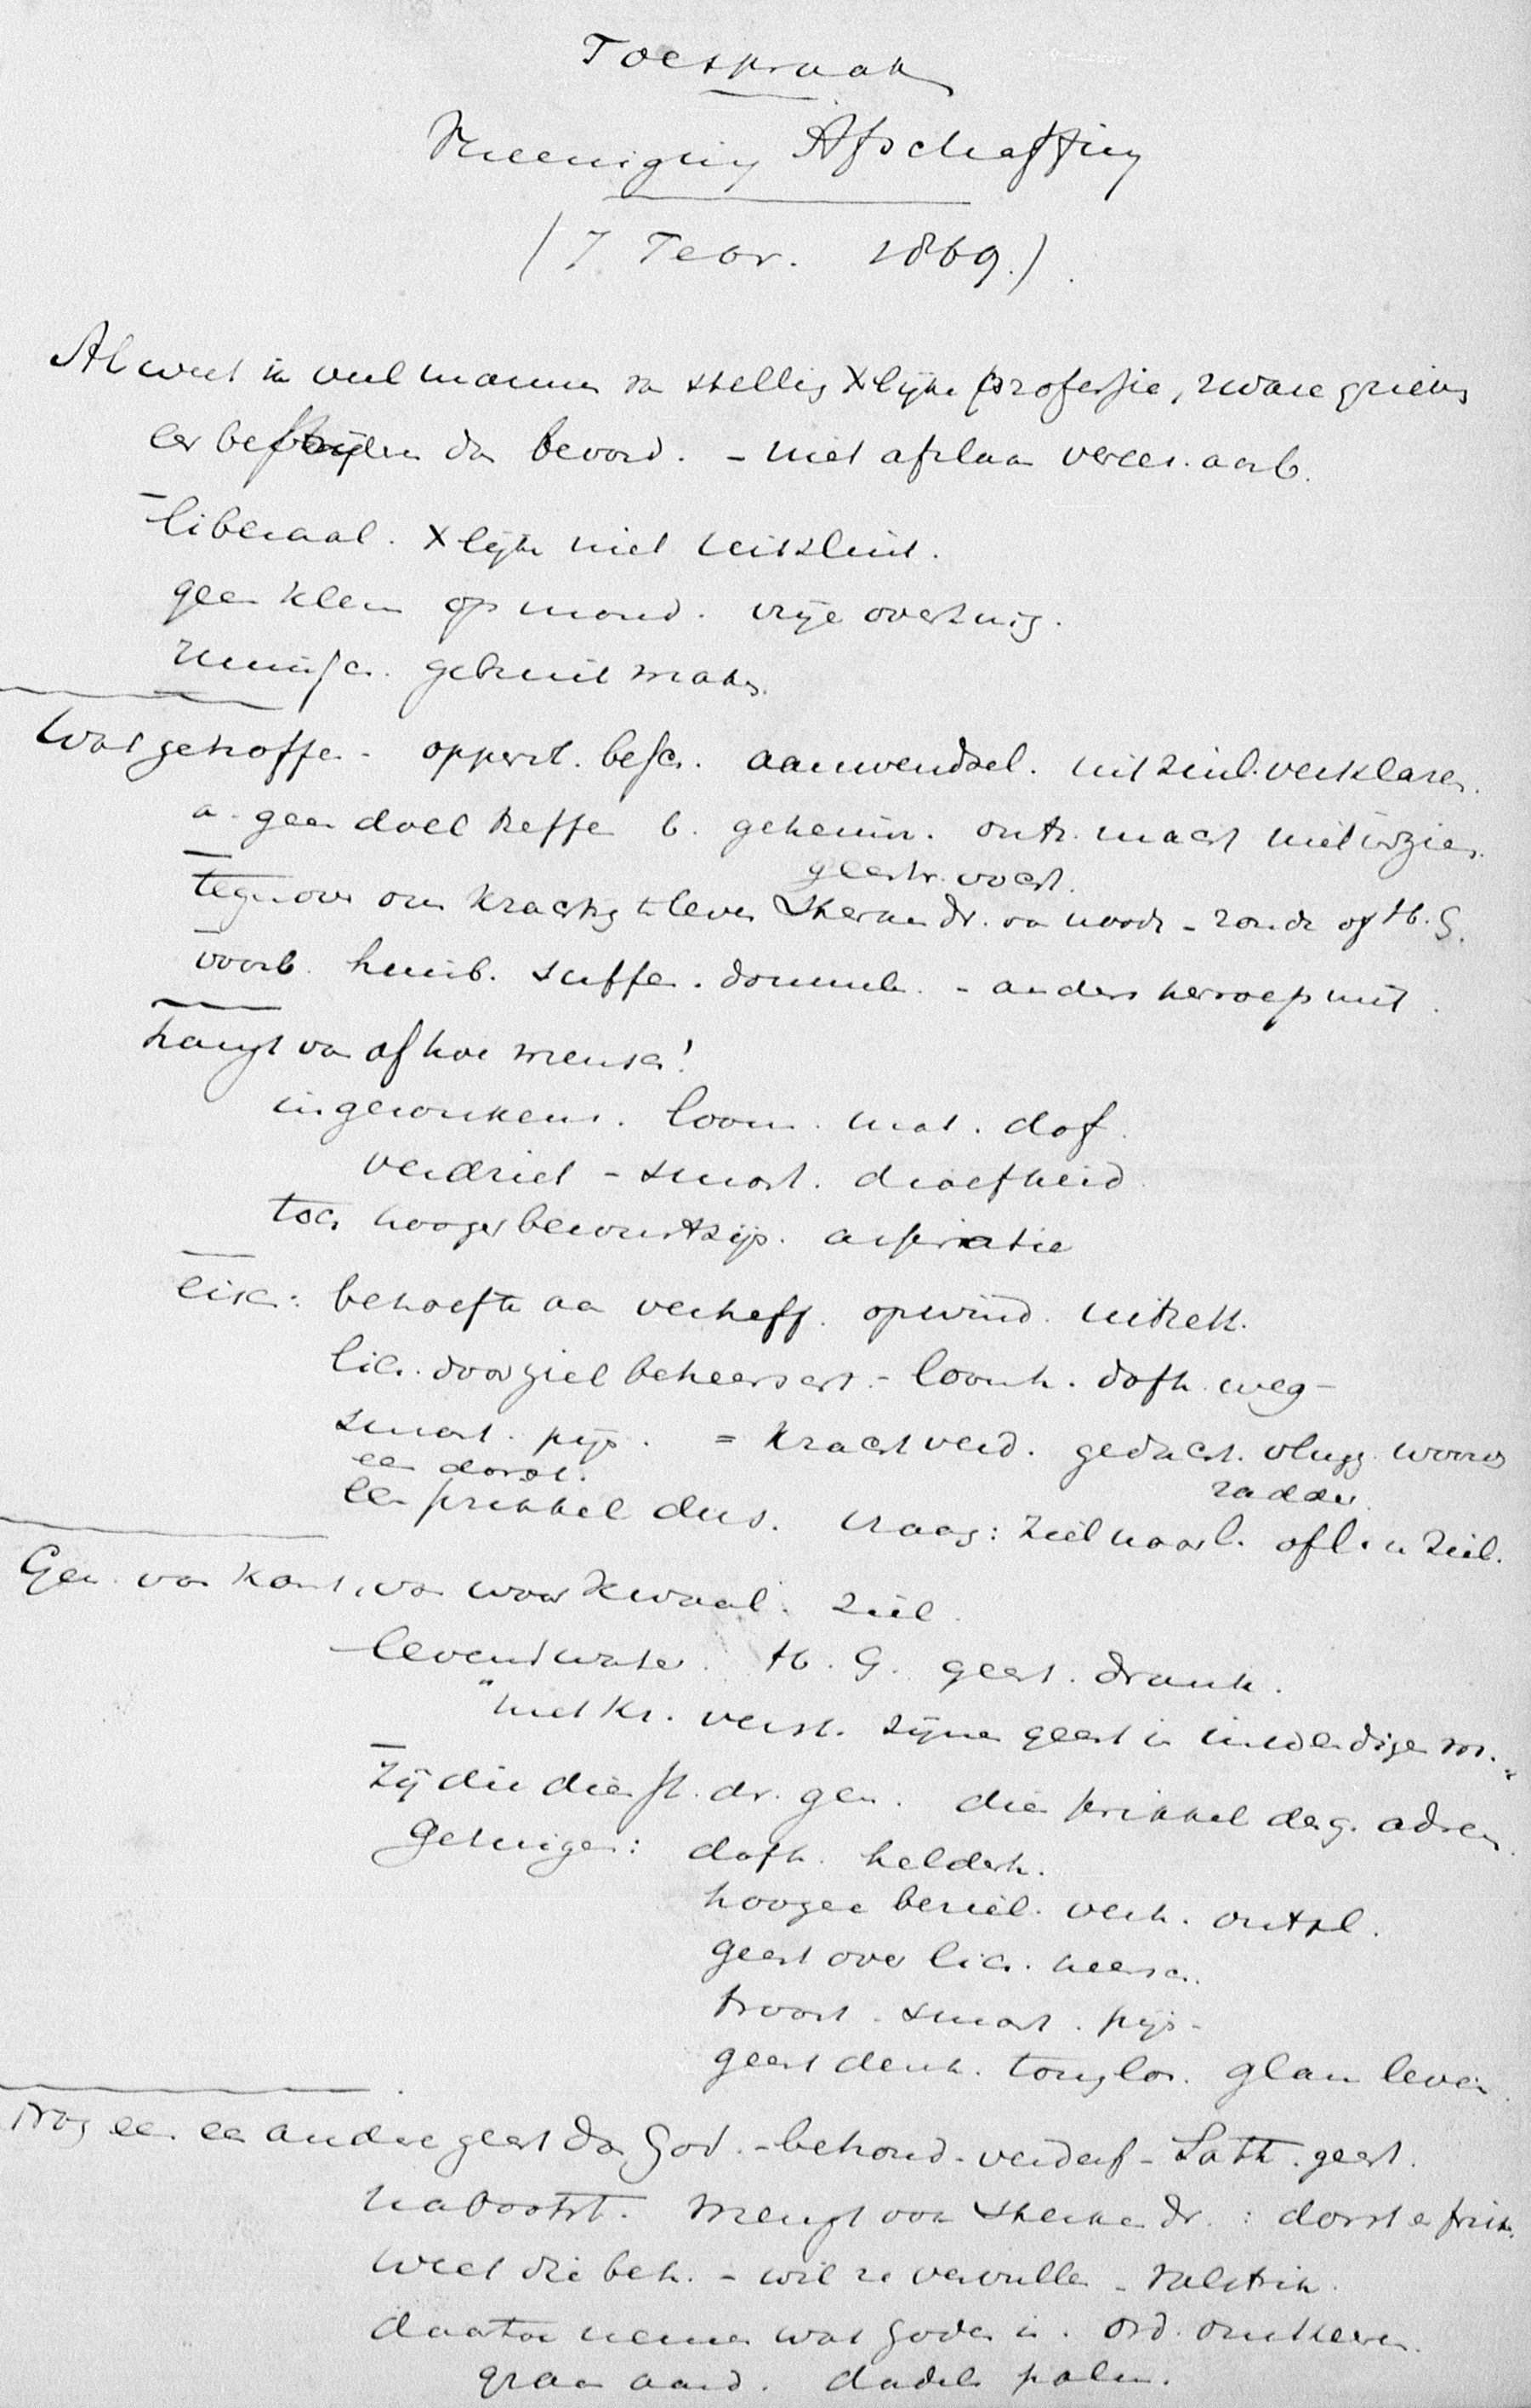 Toespraak
Vereeniging Afschaffing
(7 Febr. 1869.)
Al weet ik veel mannen van stellig Xlijke professie, zware grieven
eer bestrijden dan bevord. - niet aflaten vereer. arb.
liberaal. Xlijke niet uitsluit.
geen klem op mond. vrije overtuig.
gebruik maken.
Wat getroffen - opperst. besch. aanwendsel. uit zind. verklaren.
a. geen doel treffen b. geheimz. ontz. macht niet inzien.
geestv. vocht.
tegenover ons krachtig leven Sterken dr. van noode - zonde of H. G.
voorb. suffen. dommel. - anders
hangt van af hoe mensch!
ingezonkens. loom. mat. dof.
verdriet - smart. droefheid
toch hooger bewustzijn. aspiratie
eisch: behoefte aan verheff. opwind. uitredd.
lich. door ziel beheerscht. - loomh. dofh. weg -
smart. pijn. = kracht verd. gedacht. vlugg. woord
een dorst. radder.
een prikkel dus. vraag: ziel naar l. of l. n. ziel.
Gen. van kant, van waar kwaal. ziel.
levend water. H. G. geest. drank.
"met kr. verst. zijnen geest in inwendigen m."
Zij die dien st. dr. gen. dien prikkel deez. adren
Getuigen: dofh. helderh.
hooger beziel. verh. ontpl.
geest over lich. heersch.
troost. smart. pijn -
geest denk. tong los. glans leven.
Nog een en andere geest dan God. - behoud - verderf - Sath. geest.
nabootst. Mengt ook sterken dr.: dorst en prikk.
weet die beh. - wil ze vervullen - valstrik.
daartoe nemen wat Godes is. ord. omkeren.
graan aard. dadels palm.